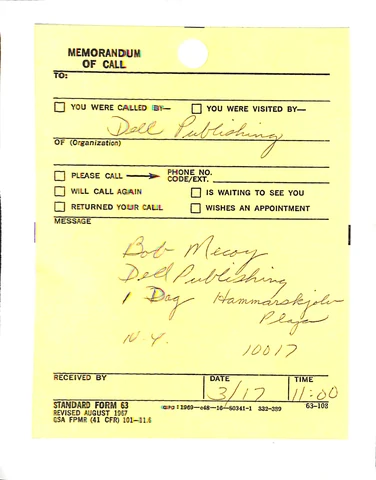 MEMORANDUM
OF CALL
TO:
YOU WERE CALLED BY—
YOU WERE VISITED BY—
Dell Publishing
OF (Organization)
PLEASE CALL
PHONE NO.
CODE/EXT.
WILL CALL AGAIN
IS WAITING TO SEE YOU
RETURNED YOUR CALL
WISHES AN APPOINTMENT
MESSAGE
Bob Mecoy
Dell Publishing
1 Dag Hammarskjold
Plaza
N.Y.
10017
RECEIVED BY
DATE
3/17
TIME
11:00
STANDARD FORM 63
REVISED AUGUST 1967
GSA FPMR (41 CFR) 101–11.6
GPO : 1969—c48—16—80341-1 332-389
63-108